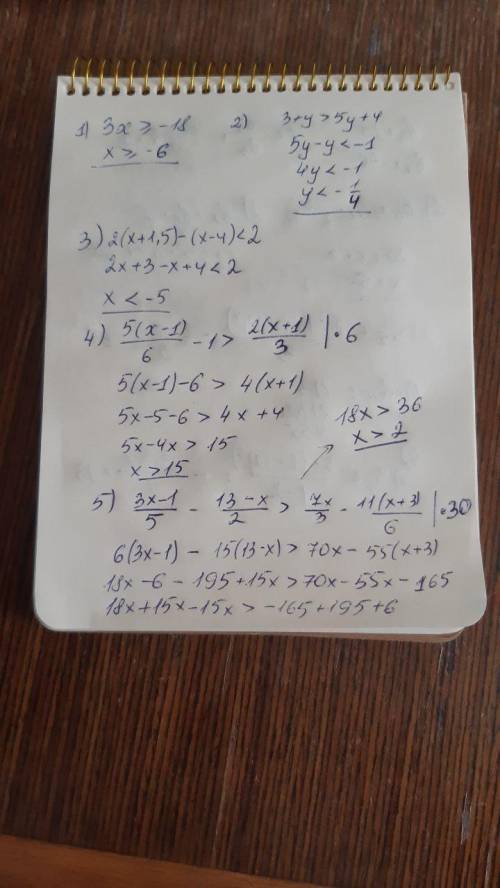 1) 3x ≥ -18
x ≥ -6
2) 3+y > 5y+4
5y-y < -1
4y < -1
y < -1/4
3) 2(x+1,5)-(x-4)<2
2x+3-x+4<2
x < -5
4) 5(x-1)/6 - 1 > 2(x+1)/3 | ·6
5(x-1)-6 > 4(x+1)
5x-5-6 > 4x+4
5x-4x > 15
x > 15
5) 3x-1/5 - 13-x/2 > 7x/3 - 11(x+3)/6 | ·30
6(3x-1) - 15(13-x) > 70x - 55(x+3)
18x-6-195+15x > 70x-55x-165
18x+15x-15x > -165+195+6
18x > 36
x > 2